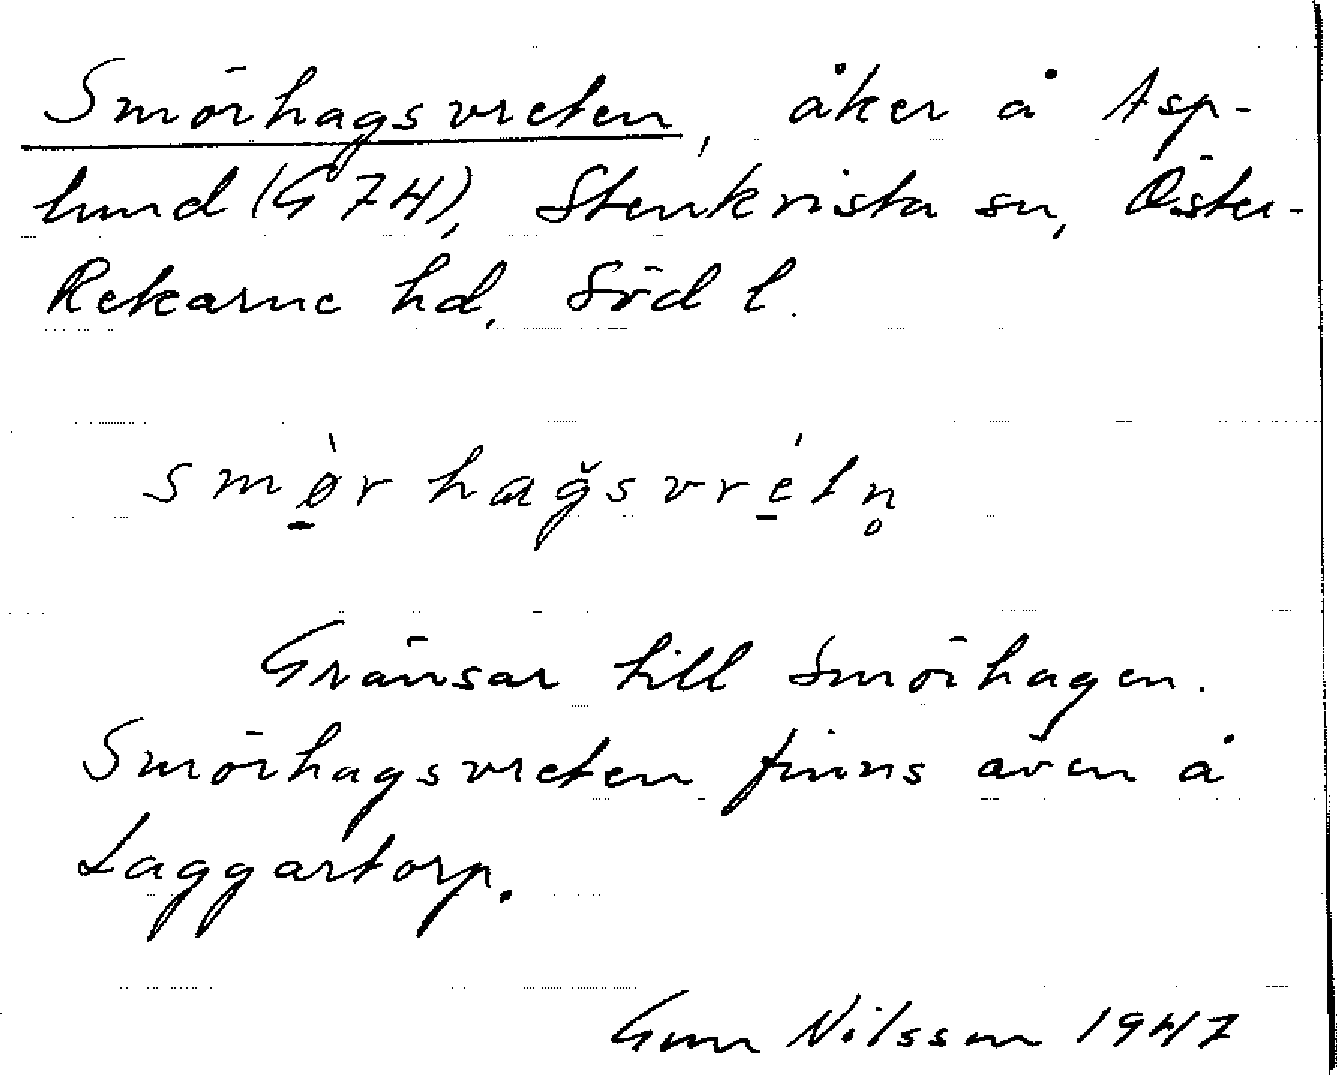 Smörhagsvreten, åker å Asp-
lund (G 74), Stenkvista sn, Öster-
Rekarne hd, Söd l.
smø̠̀rhaǧsvré̠tn̥
Gränsar till Smörhagen.
Smörhagsvreten finns även å
Laggartorp.
Gun Nilsson 1947